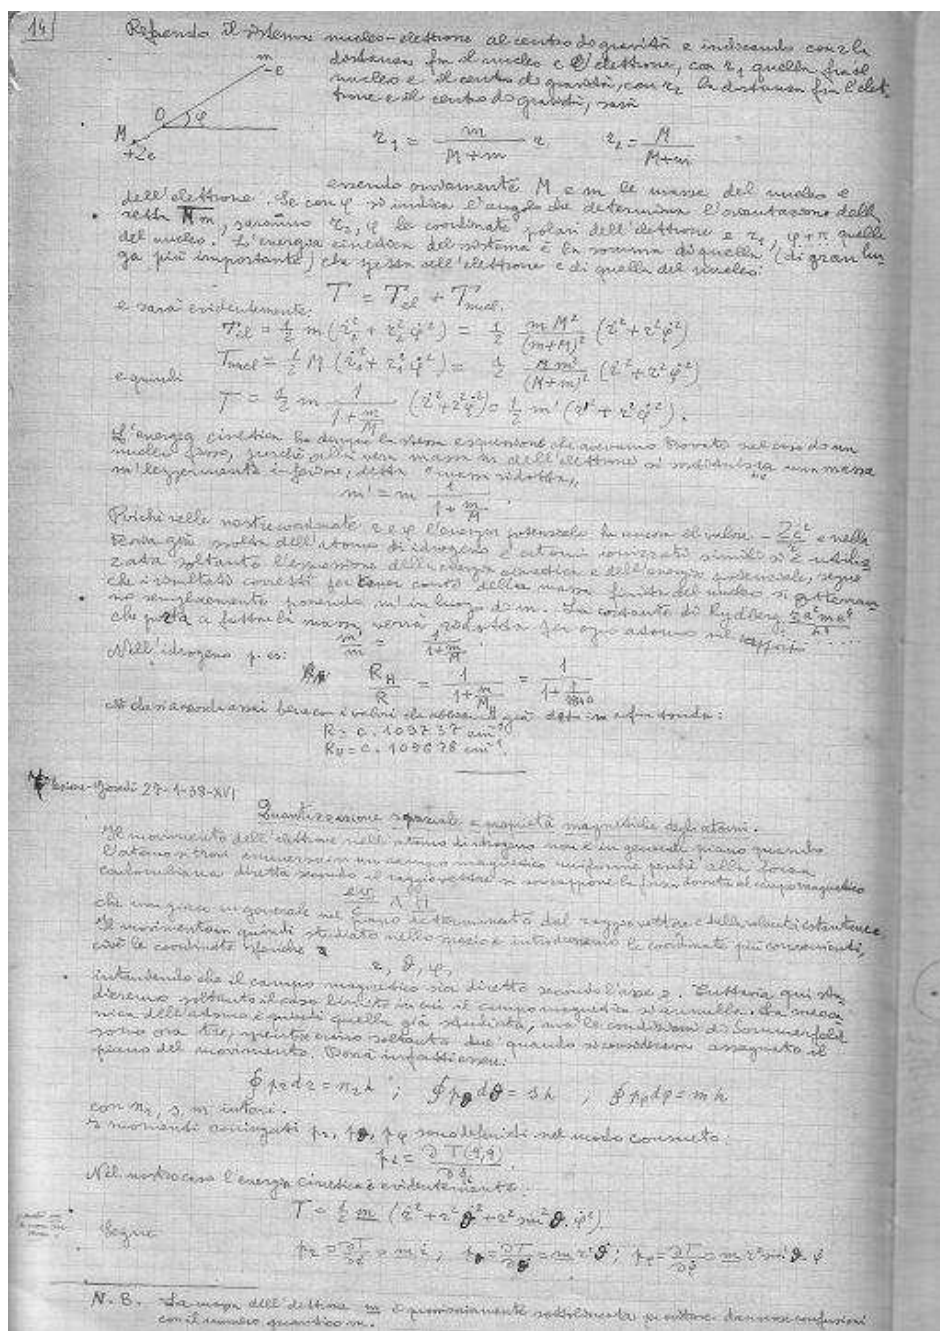 14
Riferendo il sistema nucleo-elettrone al centro di gravità e indicando con r la
distanza fra il nucleo e l'elettrone, con r₁ quella fra il
nucleo e il centro di gravità, con r₂ la distanza fra l'elet-
trone e il centro di gravità, sarà
m
-e
O φ
M
+Ze
r₁ = m/(M+m) r, r₂ = M/(M+m)
essendo ovviamente M e m le masse del nucleo e
dell'elettrone. Se con φ si indica l'angolo che determina l'orientazione della
retta Mm, saranno r₂, φ le coordinate polari dell'elettrone e r₁, φ+π quelle
del nucleo. L'energia cinetica del sistema è la somma di quella (di gran lun-
ga più importante) che spetta all'elettrone e di quella del nucleo:
T = T_el + T_nucl.
e sarà evidentemente:
T_el = ½ m (ṙ₂² + r₂² φ̇²) = ½ mM²/(m+M)² (ṙ² + r² φ̇²)
T_nucl = ½ M (ṙ₁² + r₁² φ̇²) = ½ Mm²/(M+m)² (ṙ² + r² φ̇²)
e quindi
T = ½ m 1/(1+m/M) (ṙ² + r² φ̇²) = ½ m' (ṙ² + r² φ̇²).
L'energia cinetica ha dunque la stessa espressione che avevamo trovato nel caso di un
nucleo fisso, purché alla vera massa m dell'elettrone si sostituisca una massa
m' leggermente inferiore, detta "massa ridotta"
m' = m 1/(1+m/M).
Poiché nelle nostre coordinate r e φ l'energia potenziale ha ancora il valore - Ze²/r e nella
svolta dell'atomo di idrogeno e atomi ionizzati simili si è utiliz-
zata soltanto l'espressione della energia cinetica e dell'energia potenziale, segue
che i risultati corretti per tener conto della massa finita del nucleo si otterran-
no semplicemente ponendo m' in luogo di m. La costante di Rydberg 2π²me⁴/h³
che porta a fattore la massa, verrà ridotta per ogni atomo nel rapporto
m'/m = 1/(1+m/M).
Nell'idrogeno p. es:
R_H/R = 1/(1+m/M_H) = 1/(1+1/1840)
che si accorda assai bene con i valori che abbiamo già detti in
R = c. 109737 cm⁻¹
R_H = c. 109678 cm⁻¹.
Lezione - Giovedì 27-1-38-XVI
Quantizzazione spaziale e proprietà magnetiche degli atomi.
Il movimento dell'elettrone nell'atomo di idrogeno non è in generale piano quando
l'atomo si trovi immerso in un campo magnetico uniforme perché alla forza
coulombiana diretta secondo il raggio vettore si sovrappone la forza dovuta al campo magnetico
ev/c ∧ H
che non giace in generale nel piano determinato dal raggio vettore e dalla velocità istantanea.
Il movimento va quindi studiato nello spazio e introdurremo le coordinate più convenienti,
cioè le coordinate sferiche
r, ϑ, φ,
intendendo che il campo magnetico sia diretto secondo l'asse z. Tuttavia qui stu-
dieremo soltanto il caso limite in cui il campo magnetico si annulla. La mecca-
nica dell'atomo è quindi quella già studiata, ma le condizioni di Sommerfeld
sono ora tre, mentre erano soltanto due quando si considerava assegnato il
piano del movimento. Dovrà infatti essere:
∮ p_r dr = n_r h ; ∮ p_ϑ dϑ = s h ; ∮ p_φ dφ = m h
con n_r, s, m interi.
I momenti coniugati p_r, p_ϑ, p_φ sono definiti nel modo consueto:
p_i = ∂T(q,q̇)/∂q̇_i
Nel nostro caso l'energia cinetica è evidentemente:
T = ½ m (ṙ² + r² ϑ̇² + r² sin²ϑ. φ̇²)
Segue
p_r = ∂T/∂ṙ = m ṙ ; p_ϑ = ∂T/∂ϑ̇ = m r² ϑ̇ ; p_φ = ∂T/∂φ̇ = m r² sin²ϑ. φ̇
N.B. La massa dell'elettrone m è provvisoriamente sottolineata per evitare dannose confusioni
con il numero quantico m.